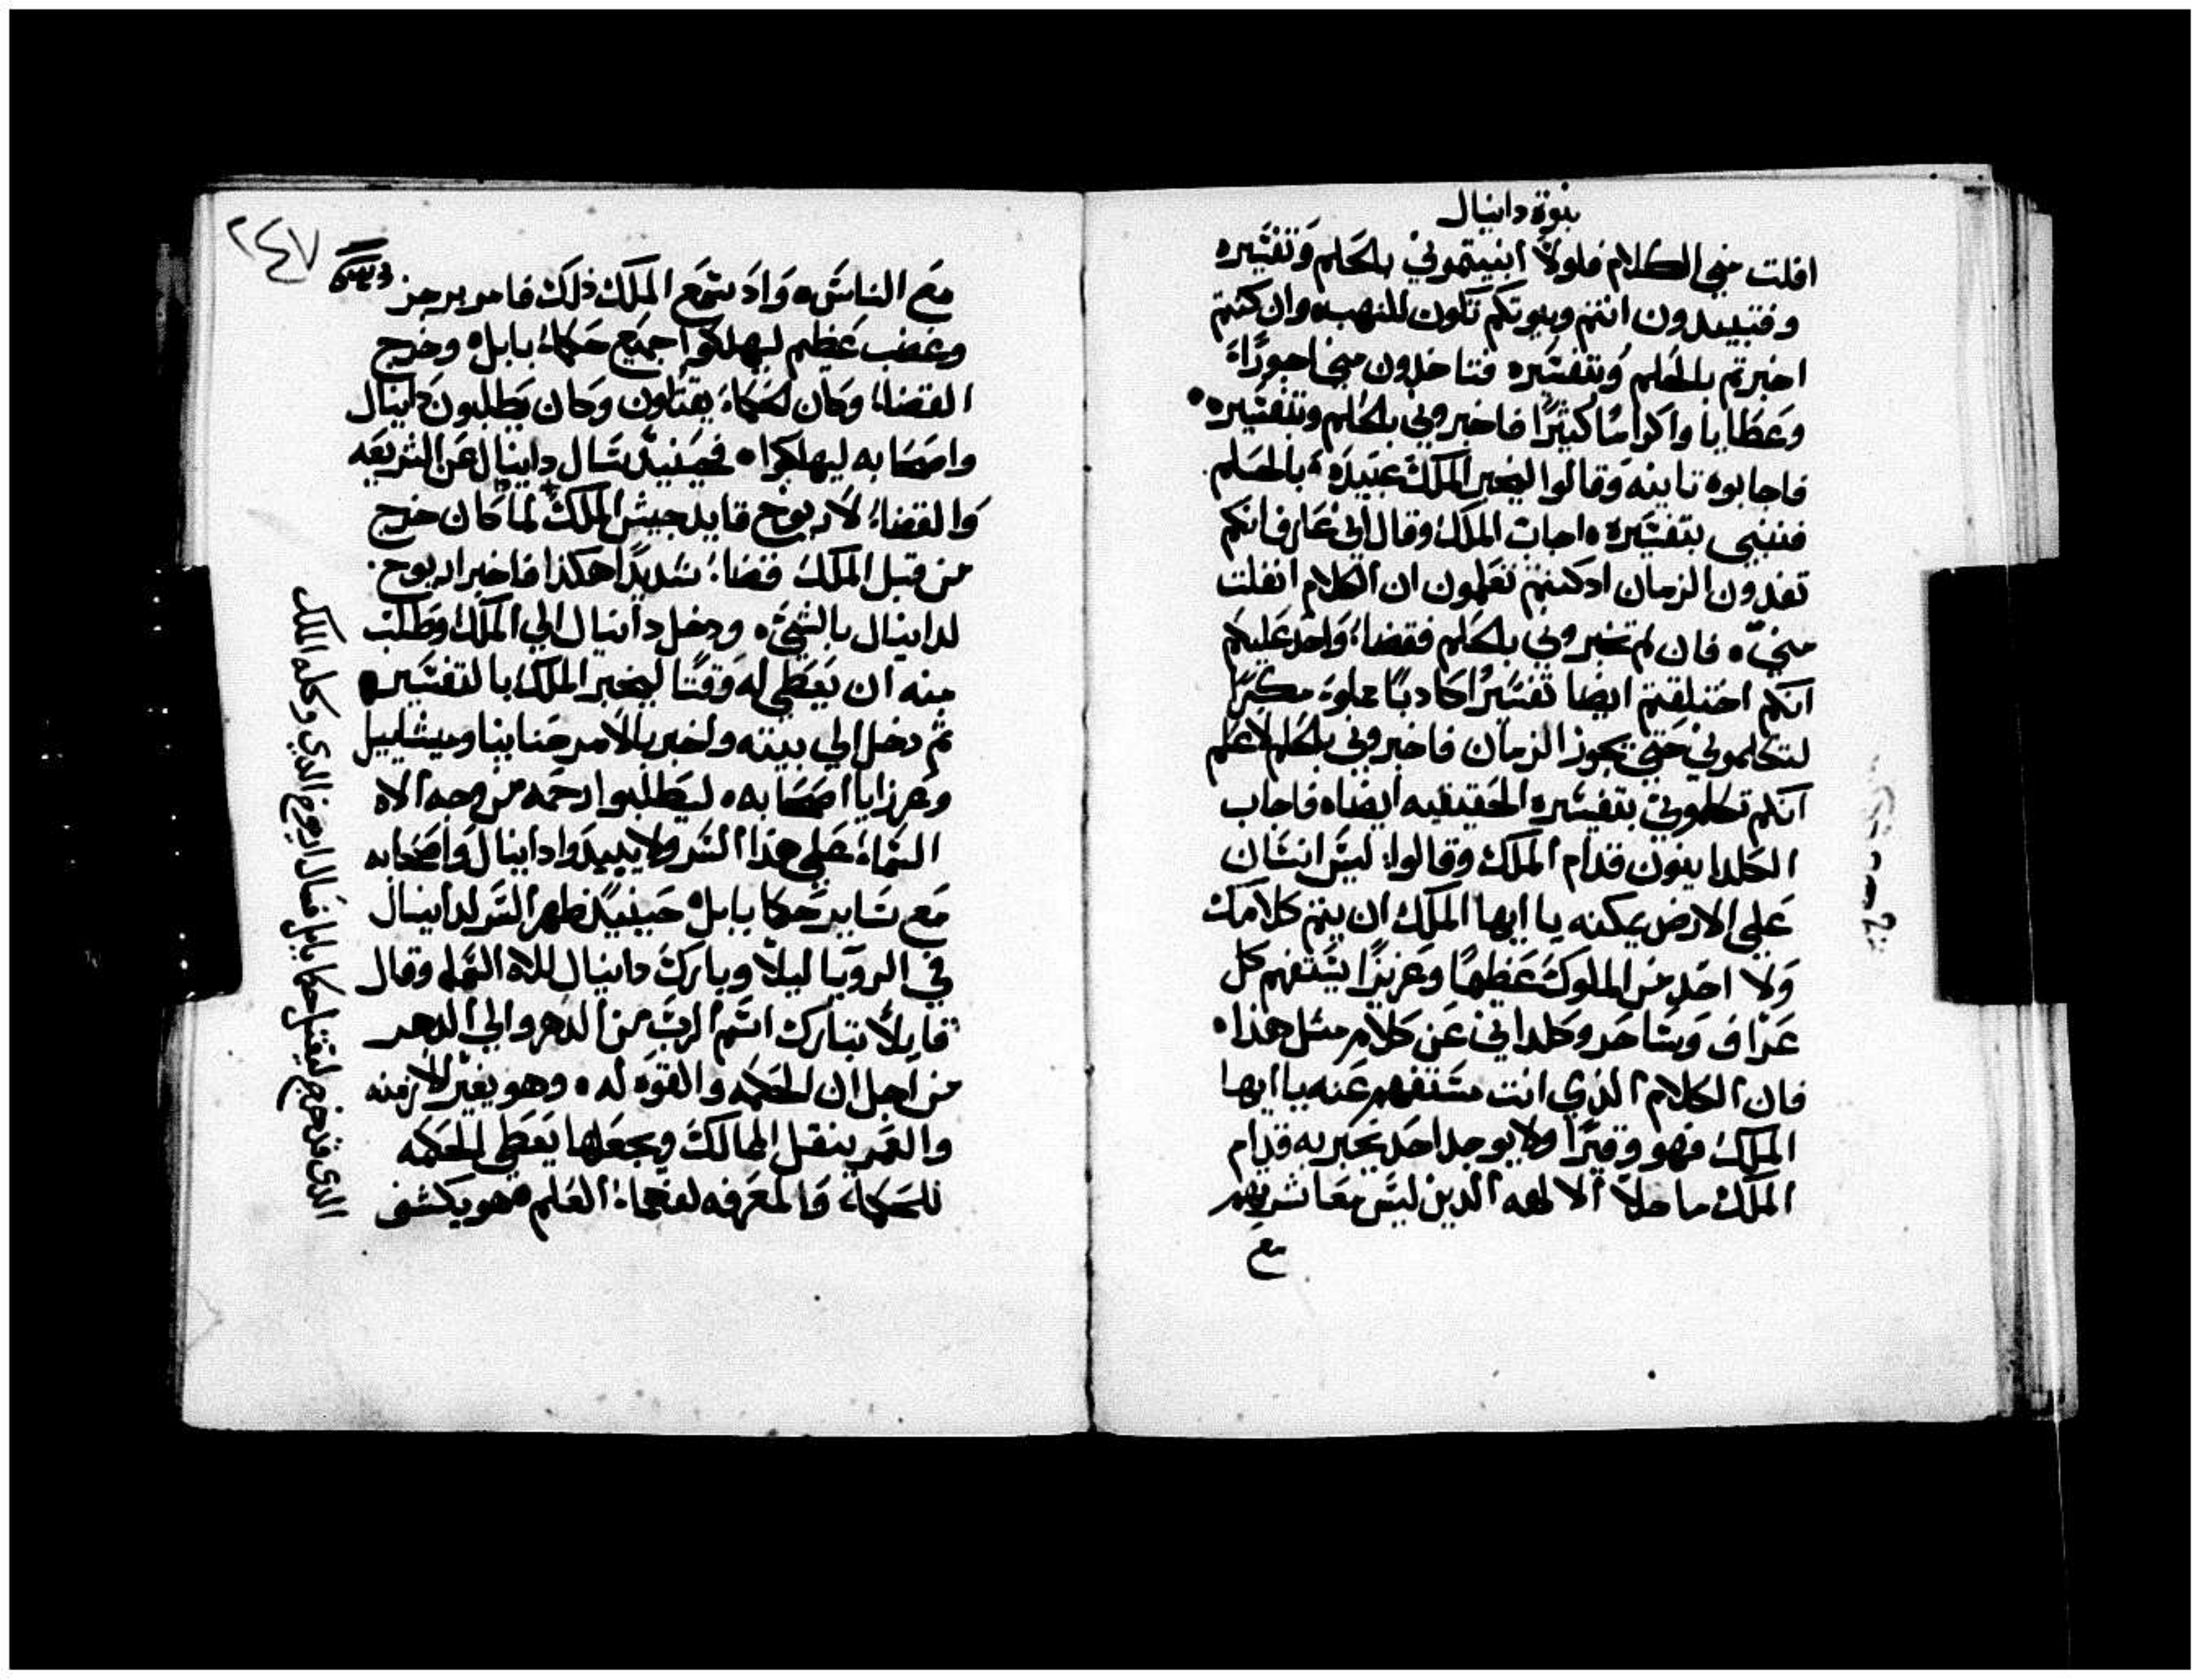 نبوة دانيال
افلت مني الكلام فلولا انبيتموني بالحلم وتفسيره
وفتبيدون انتم وبيوتكم تكون للنهب وان كنتم
اخبرتم بالحلم وبتفسيره فتاخدون مني اجورًا
وعطايا واكرامًا كثيرًا فاخبروني بالحلم وبتفسيره
فاجابوه تانيه وقالوا ليخبر الملك عبيده بالحلم
فننبي بتفسيره اجاب الملك وقال اني عارف انكم
تفدون الزمان ادكنتم تعلمون ان الكلام انفلت
مني فان لم تخبروني بالحلم فقضاء واحد عليكم
انكم اختلقتم ايضا تفسيرًا كادبًا مملوء مكرًا
لتكلموني حتى يجوز الزمان فاخبروني بالحلم لاعلم
انكم تكلموني بتفسيره الحقيقيه ايضاه فاجاب
الكلدانيون قدام الملك وقالوا ليس انسان
على الارض يمكنه يا ايها الملك ان يتم كلامك
ولا احد من الملوك عظيمًا وعزيزًا يستفهم كل
عراف وساحر وكلداني عن كلام مثل هذا
فان الكلام الذي انت مستفهم عنه يا ايها
الملك فهو وقيرًا ولا يوجد احد يخبر به قدام
الملك ما خلا الالهه الدين ليس معاشرتهم
مع
٢٤٧
مع الناس واد سمع الملك ذلك فامر برجز
وغضب عظيم ليهلكوا جميع حكماء بابل وخرج
القضاء وكان الحكماء يقتلون وكان يطلبون دانيال
واصحابه ليهلكوا فحينيد سال دانيال عن الشريعه
والقضاء لاريوخ قايد جيش الملك لما كان خرج
من قبل الملك قضاء شديدًا هكذا فاخبر اريوح
لدانيال بالشي ودخل دانيال الي الملك وطلب
منه ان يعطي له وقتًا ليخبر الملك بالتفسير
ثم دخل الي بيته واخبر بالامر حنانيا وميشاييل
وعزايا اصحابه ليطلبوا رحمه من وجه الاه
السماء على هذا السر ولا يبيدوا دانيال واصحابه
مع ساير حكما بابل حينيد ظهر السر لدانيال
في الرويا ليلًا وبارك دانيال للاه السما وقال
قايلًا تبارك اسم الرب من الدهر والي الدهر
من اجل ان الحكمه والقوه له وهو يغير الازمنه
والعمر ينقل الممالك ويجعلها يعطي الحكمه
للحكماء والمعرفه لفهماء العلم هو يكشف
الذي قد خرج ليقتل حكما بابل فسال اريوخ الذي وكله الملك